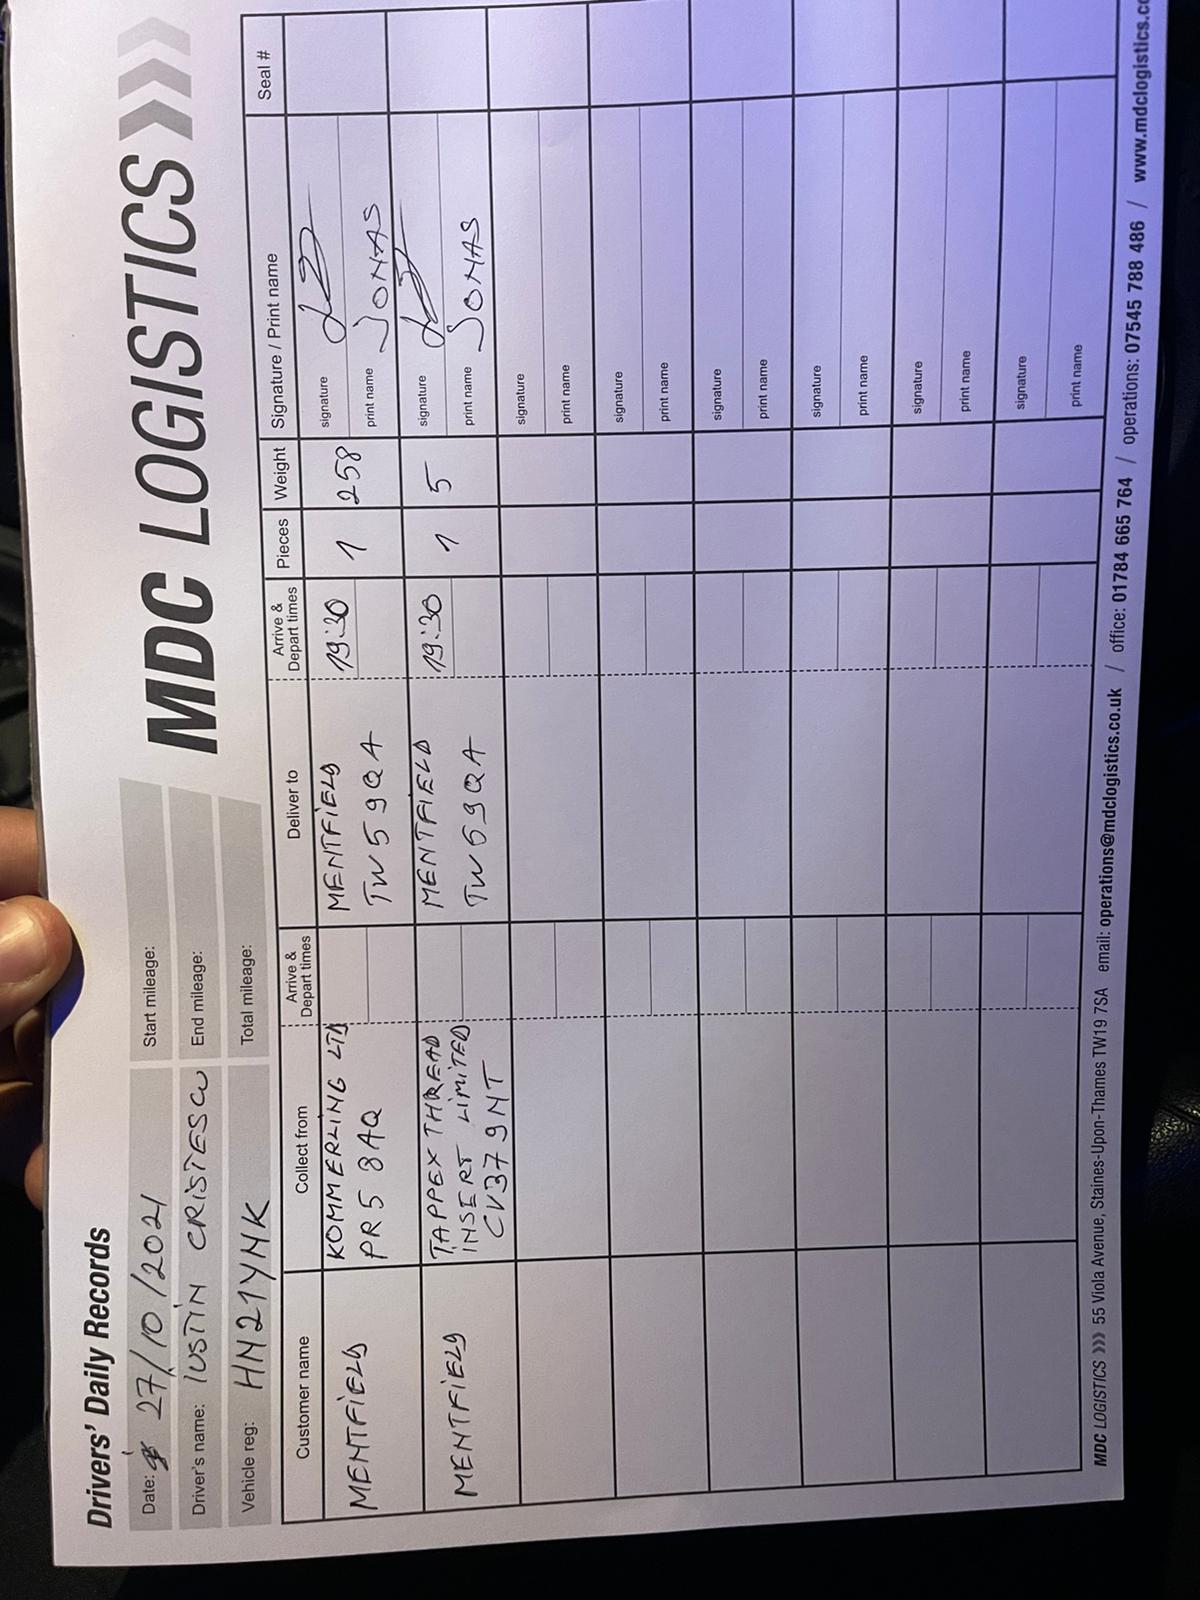 Drivers' Daily Records
MDC LOGISTICS
Date: 27/10/2021
Start mileage:
Driver's name: IUSTIN CRISTESCU
End mileage:
Vehicle reg: HN21YNK
Total mileage:
Customer name Collect from Arrive & Depart times Deliver to Arrive & Depart times Pieces Weight Signature / Print name Seal #
MENTFIELD KOMMERLING LTD MENTFIELD 19:30 1 258 signature
PR5 8AQ TW5 9QA print name JONAS
MENTFIELD TAPPEX THREAD MENTFIELD 19:30 1 5 signature
INSERT LIMITED TW59QA print name JONAS
CV37 9NT
signature
print name
signature
print name
signature
print name
signature
print name
signature
print name
signature
print name
MDC LOGISTICS >>> 55 Viola Avenue, Staines-Upon-Thames TW19 7SA email: operations@mdclogistics.co.uk / office: 01784 665 764 / operations: 07545 788 486 / www.mdclogistics.co